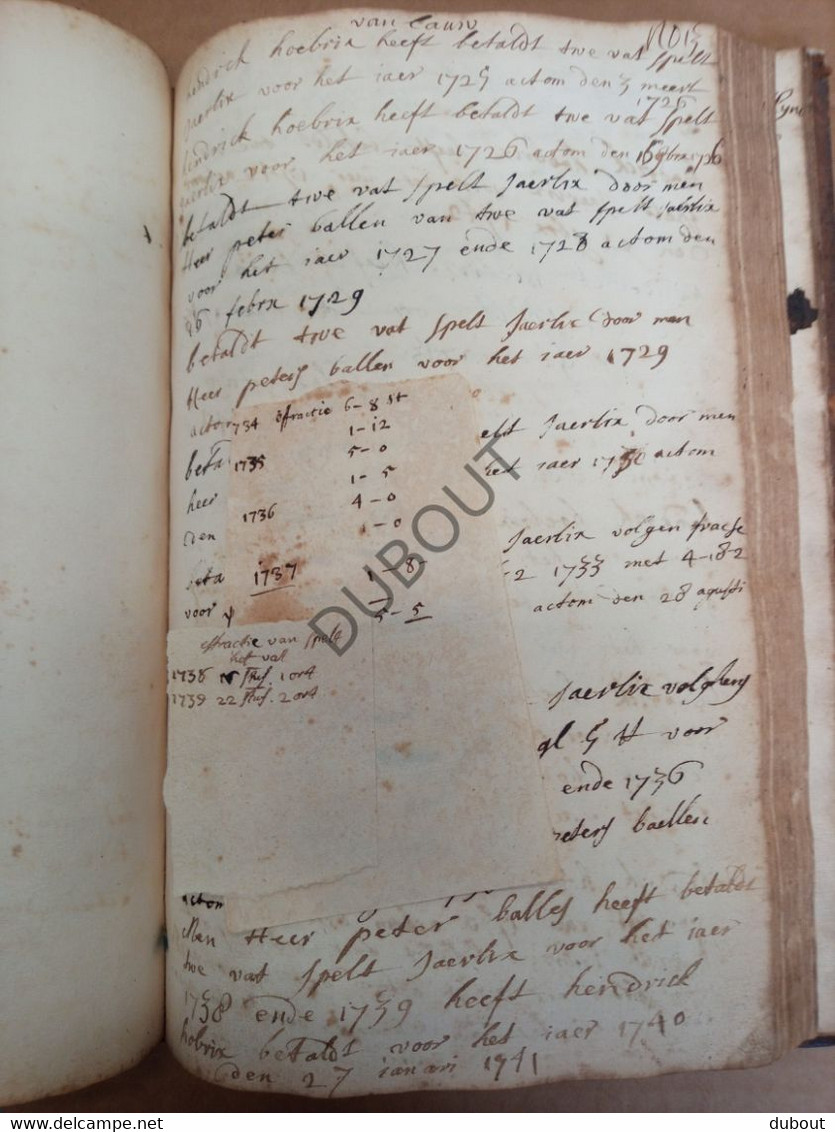 van eauw
No 13
hendrick hoebrix heeft betaldt twe vat spelt
Jaerlix voor het iaer 1725 actom den 3 meert
1726
hendrick hoebrix heeft betaldt twe vat spelt
Jaerlix voor het iaer 1726 actom den
betaldt twe vat spelt Jaerlix door men
Heer peters ballen van twe vat spelt Jaerlix
voor het iaer 1727 ende 1728 actom den
26 febrx 1729
betaldt twe vat spelt Jaerlix door men
Heer peters ballen voor het iaer 1729
acto
1734 effractie 6-8 st
1-12
beta
elt Jaerlix door men
1735 5-0
1-5
heer
het iaer 1730 actom
1736 4-0
1-0
den
Jaerlix volgen fracse
beta
1737 1-8-
2 1733 met 4-18-2
voor
5-5
actom den 28 agusti
effractie van spelt
het vat
1738 15 stuf. 1 ort
1739 22 stuf. 2 ort
Jaerlix volghens
gl 5 st voor
ende 1736
peters ballen
actom
Men Heer peter balles heeft betaldt
twe vat spelt Jaerlix voor het iaer
1738 ende 1739 heeft hendrick
hobrix betaldt voor het iaer 1740
den 27 ianari 1741
DUBOUT
delcampe.net
dubout